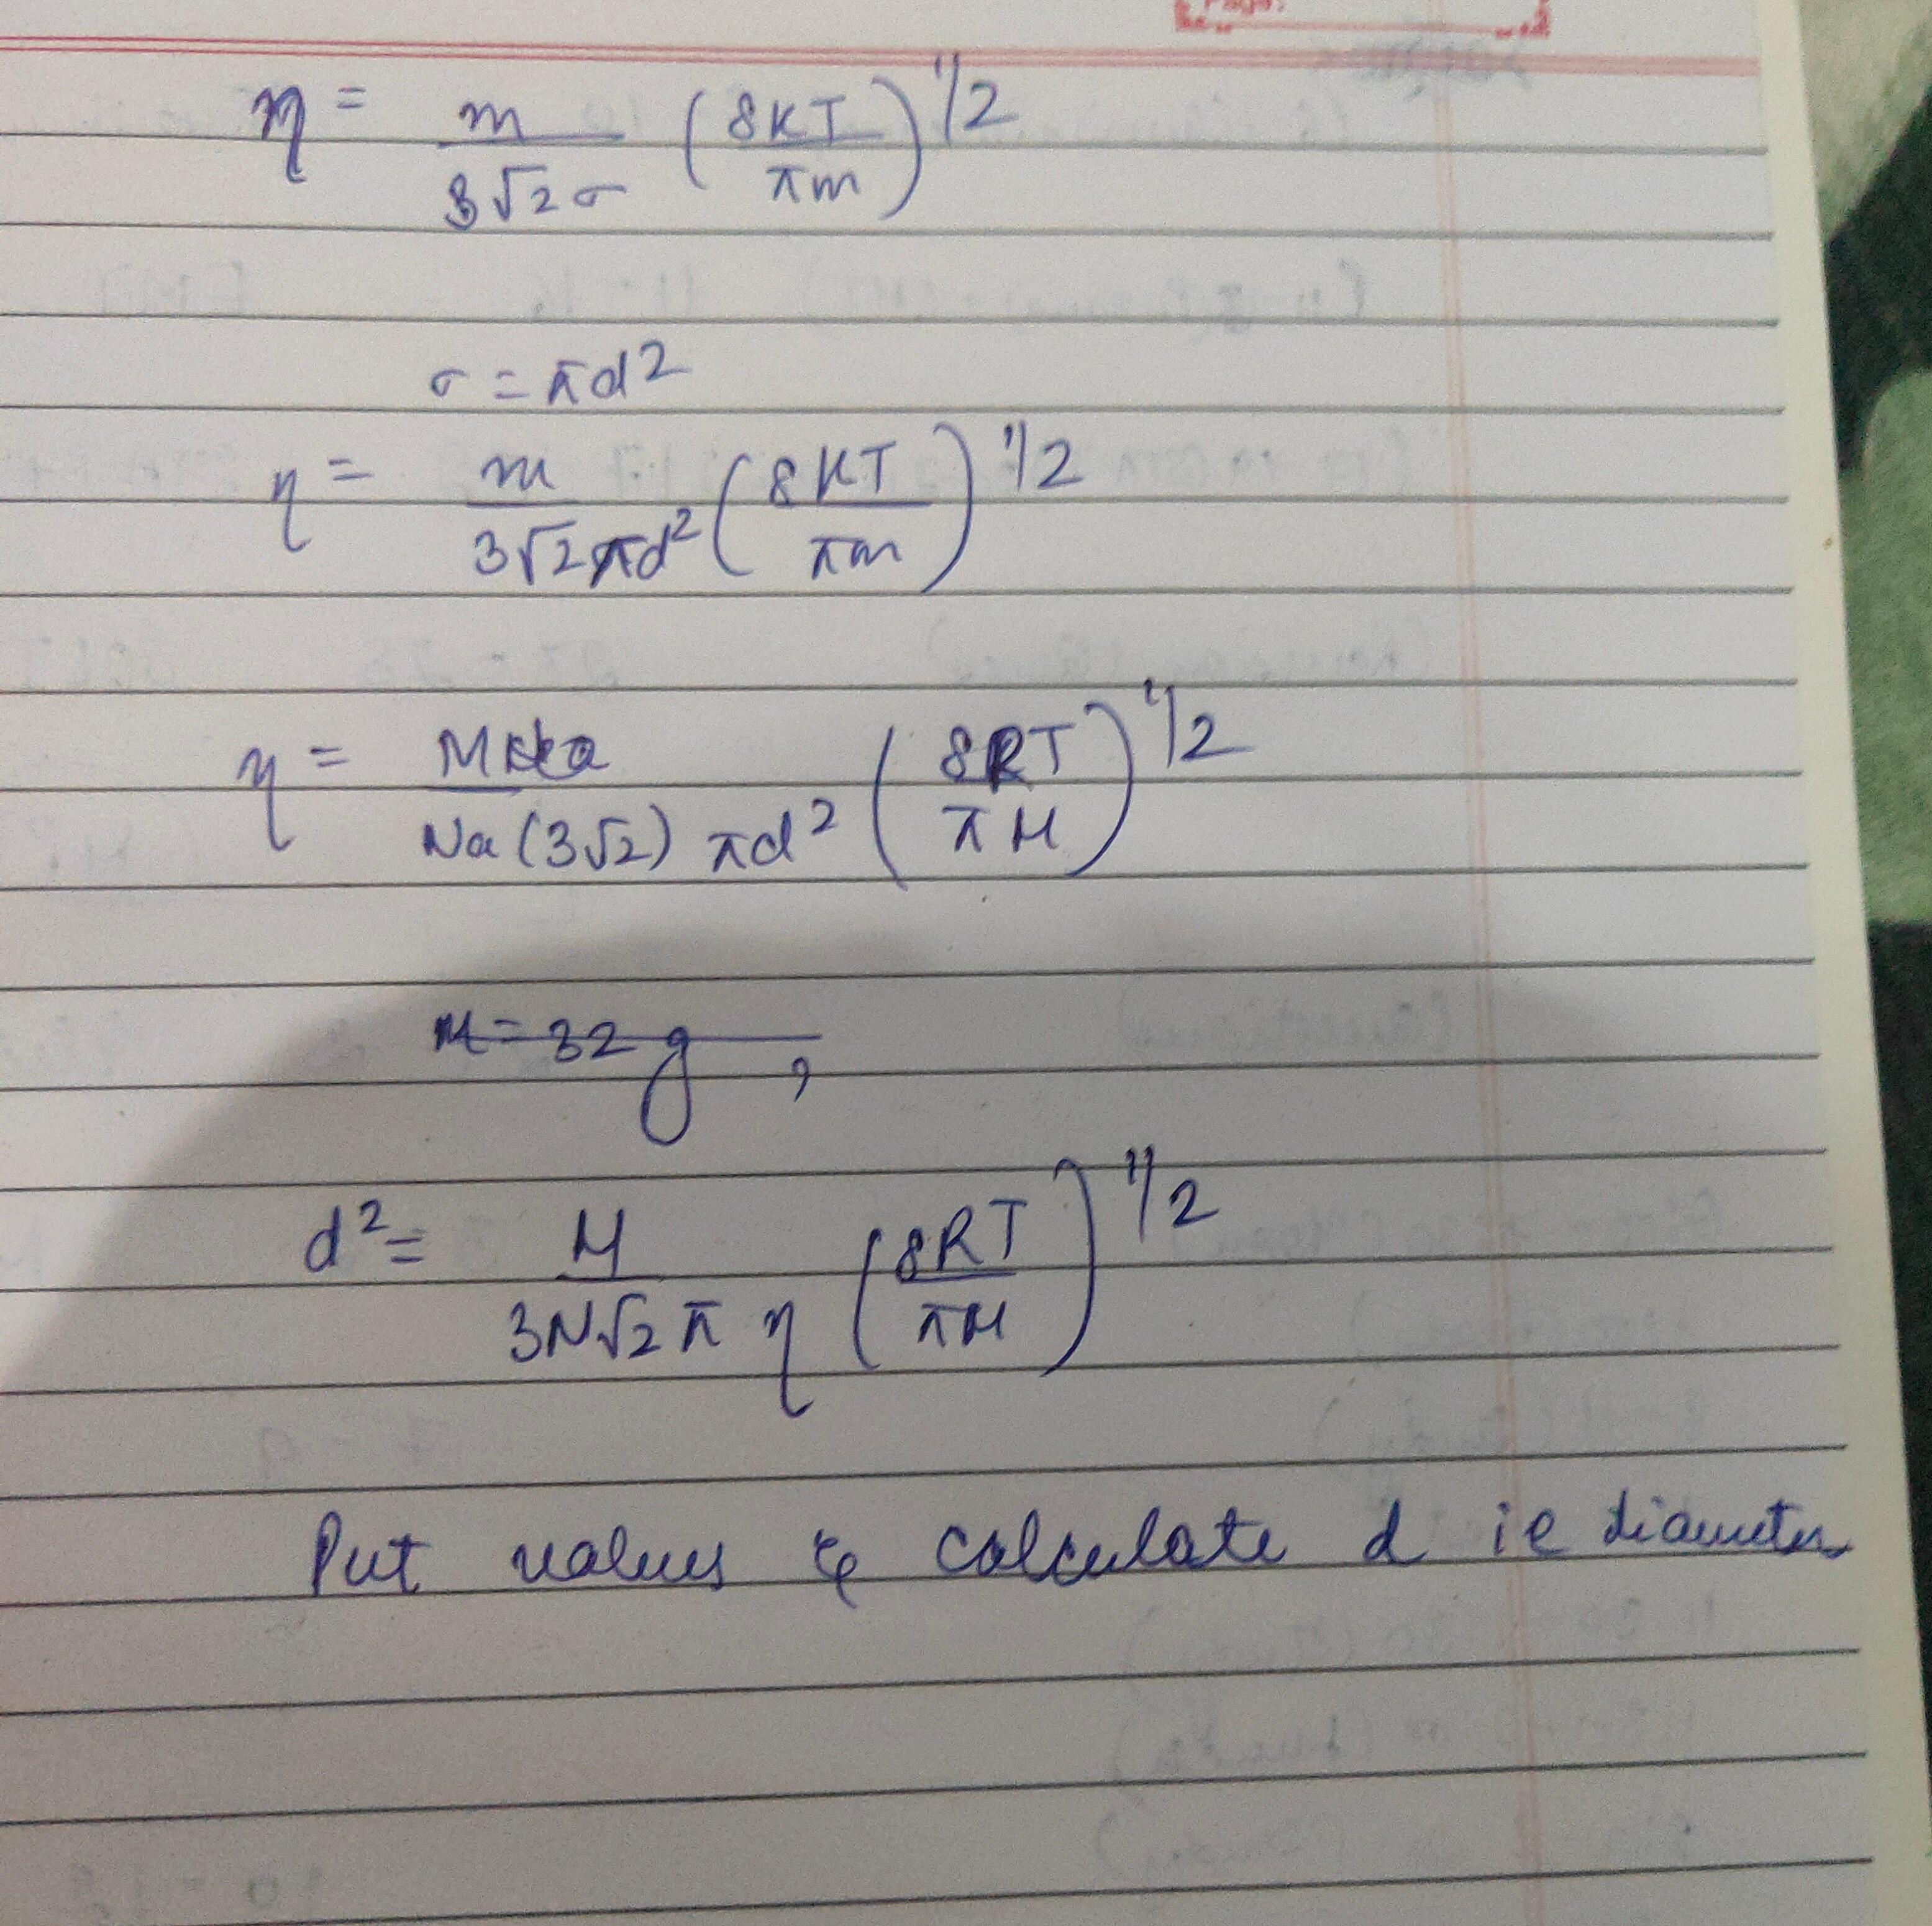 Page:
η = m / 3√2 σ (8KT / πm)^1/2
σ = πd²
η = m / 3√2 πd² (8KT / πm)^1/2
η = M / Na (3√2) πd² (8RT / πM)^1/2
M = 32 g ,
d² = M / 3N√2 π η (8RT / πM)^1/2
Put values & calculate d ie diameter